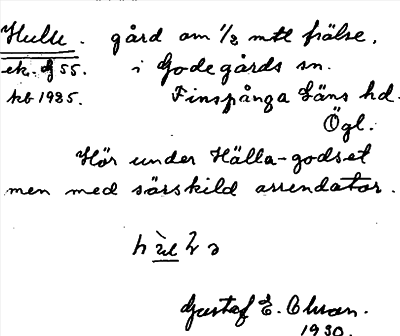 Hulle. gård om 1/8 mtl frälse,
ek. df 55. i Godegårds sn.
hb 1925. Finspånga Läns hd.
Ögl.
Hör under Hälla-godset
men med särskild arrendator.
Gustaf E. Olson.
1930.